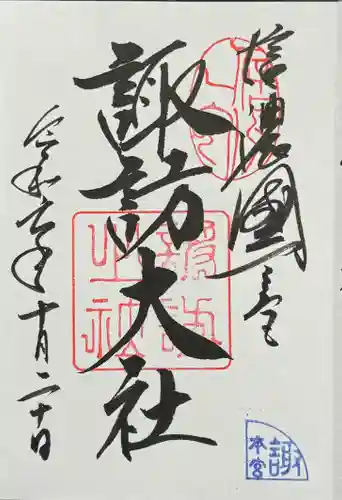 信濃國一之宮
諏訪大社
令和六年十月二十日
諏
本宮